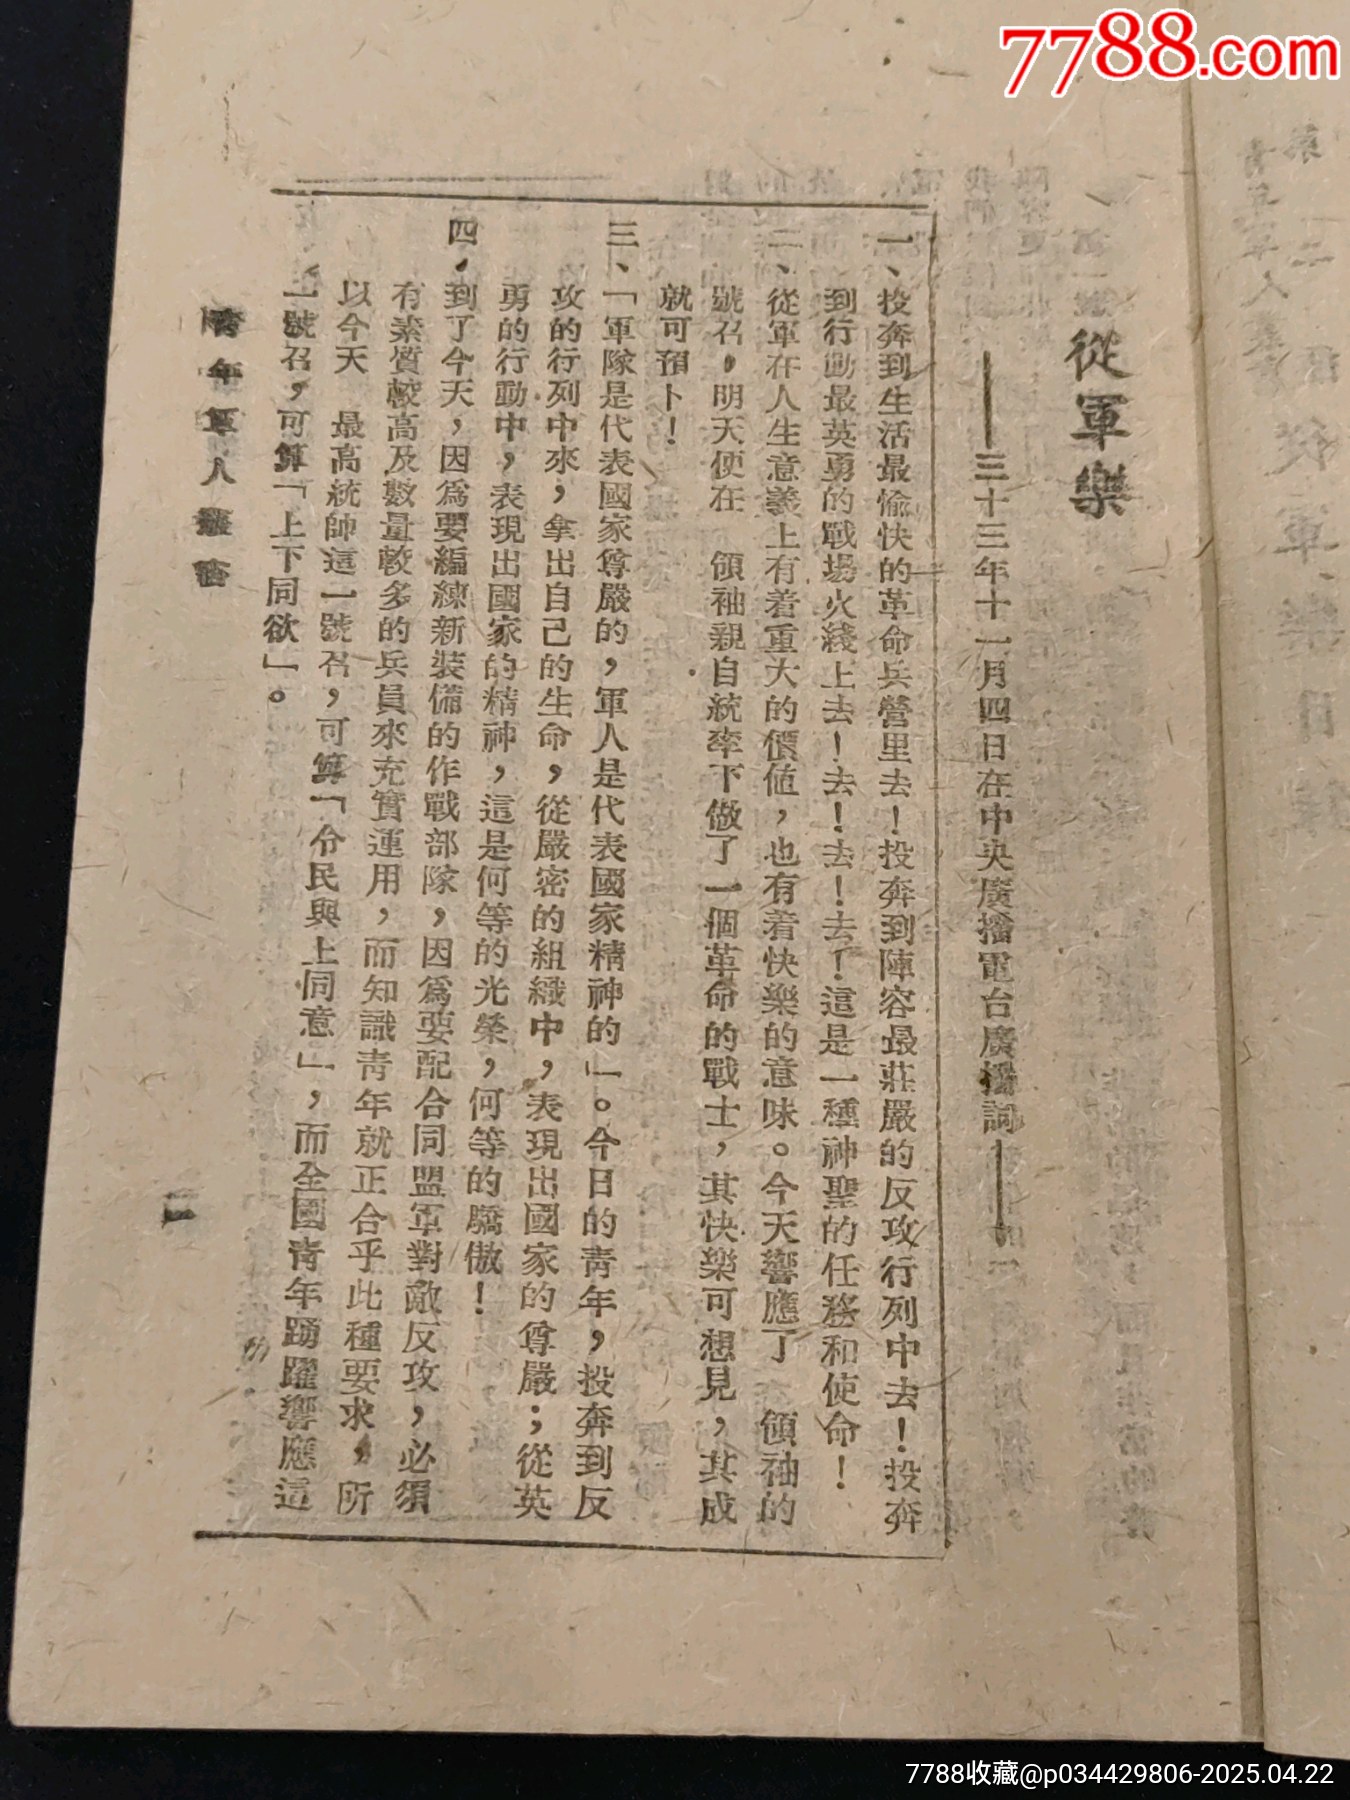 7788.com
從軍樂
——三十三年十一月四日在中央廣播電台廣播詞——
一、投奔到生活最愉快的革命兵營里去！投奔到陣容最莊嚴的反攻行列中去！投奔
到行動最英勇的戰場火綫上去！去！去！去！這是一種神聖的任務和使命！
二、從軍在人生意義上有着重大的價值，也有着快樂的意味。今天響應了　領袖的
號召，明天便在　領袖親自統率下做了一個革命的戰士，其快樂可想見，其成
就可預卜！
三、「軍隊是代表國家尊嚴的，軍人是代表國家精神的」。今日的青年，投奔到反
攻的行列中來，拿出自己的生命，從嚴密的組織中，表現出國家的尊嚴；從英
勇的行動中，表現出國家的精神，這是何等的光榮，何等的驕傲！
四，到了今天，因為要編練新裝備的作戰部隊，因為要配合同盟軍對敵反攻，必須
有素質較高及數量較多的兵員來充實運用，而知識青年就正合乎此種要求，所
以今天　最高統帥這一號召，可算「令民與上同意」，而全國青年踴躍響應這
一號召，可算「上下同欲」。
青年軍人叢書
7788收藏@p034429806-2025.04.22